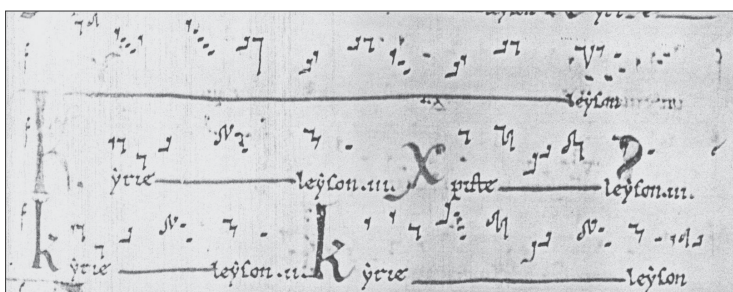 leẏson
kẏrie leẏson .iii. Xpiste leẏson .iii.
kẏrie leẏson .iii. kẏrie leẏson